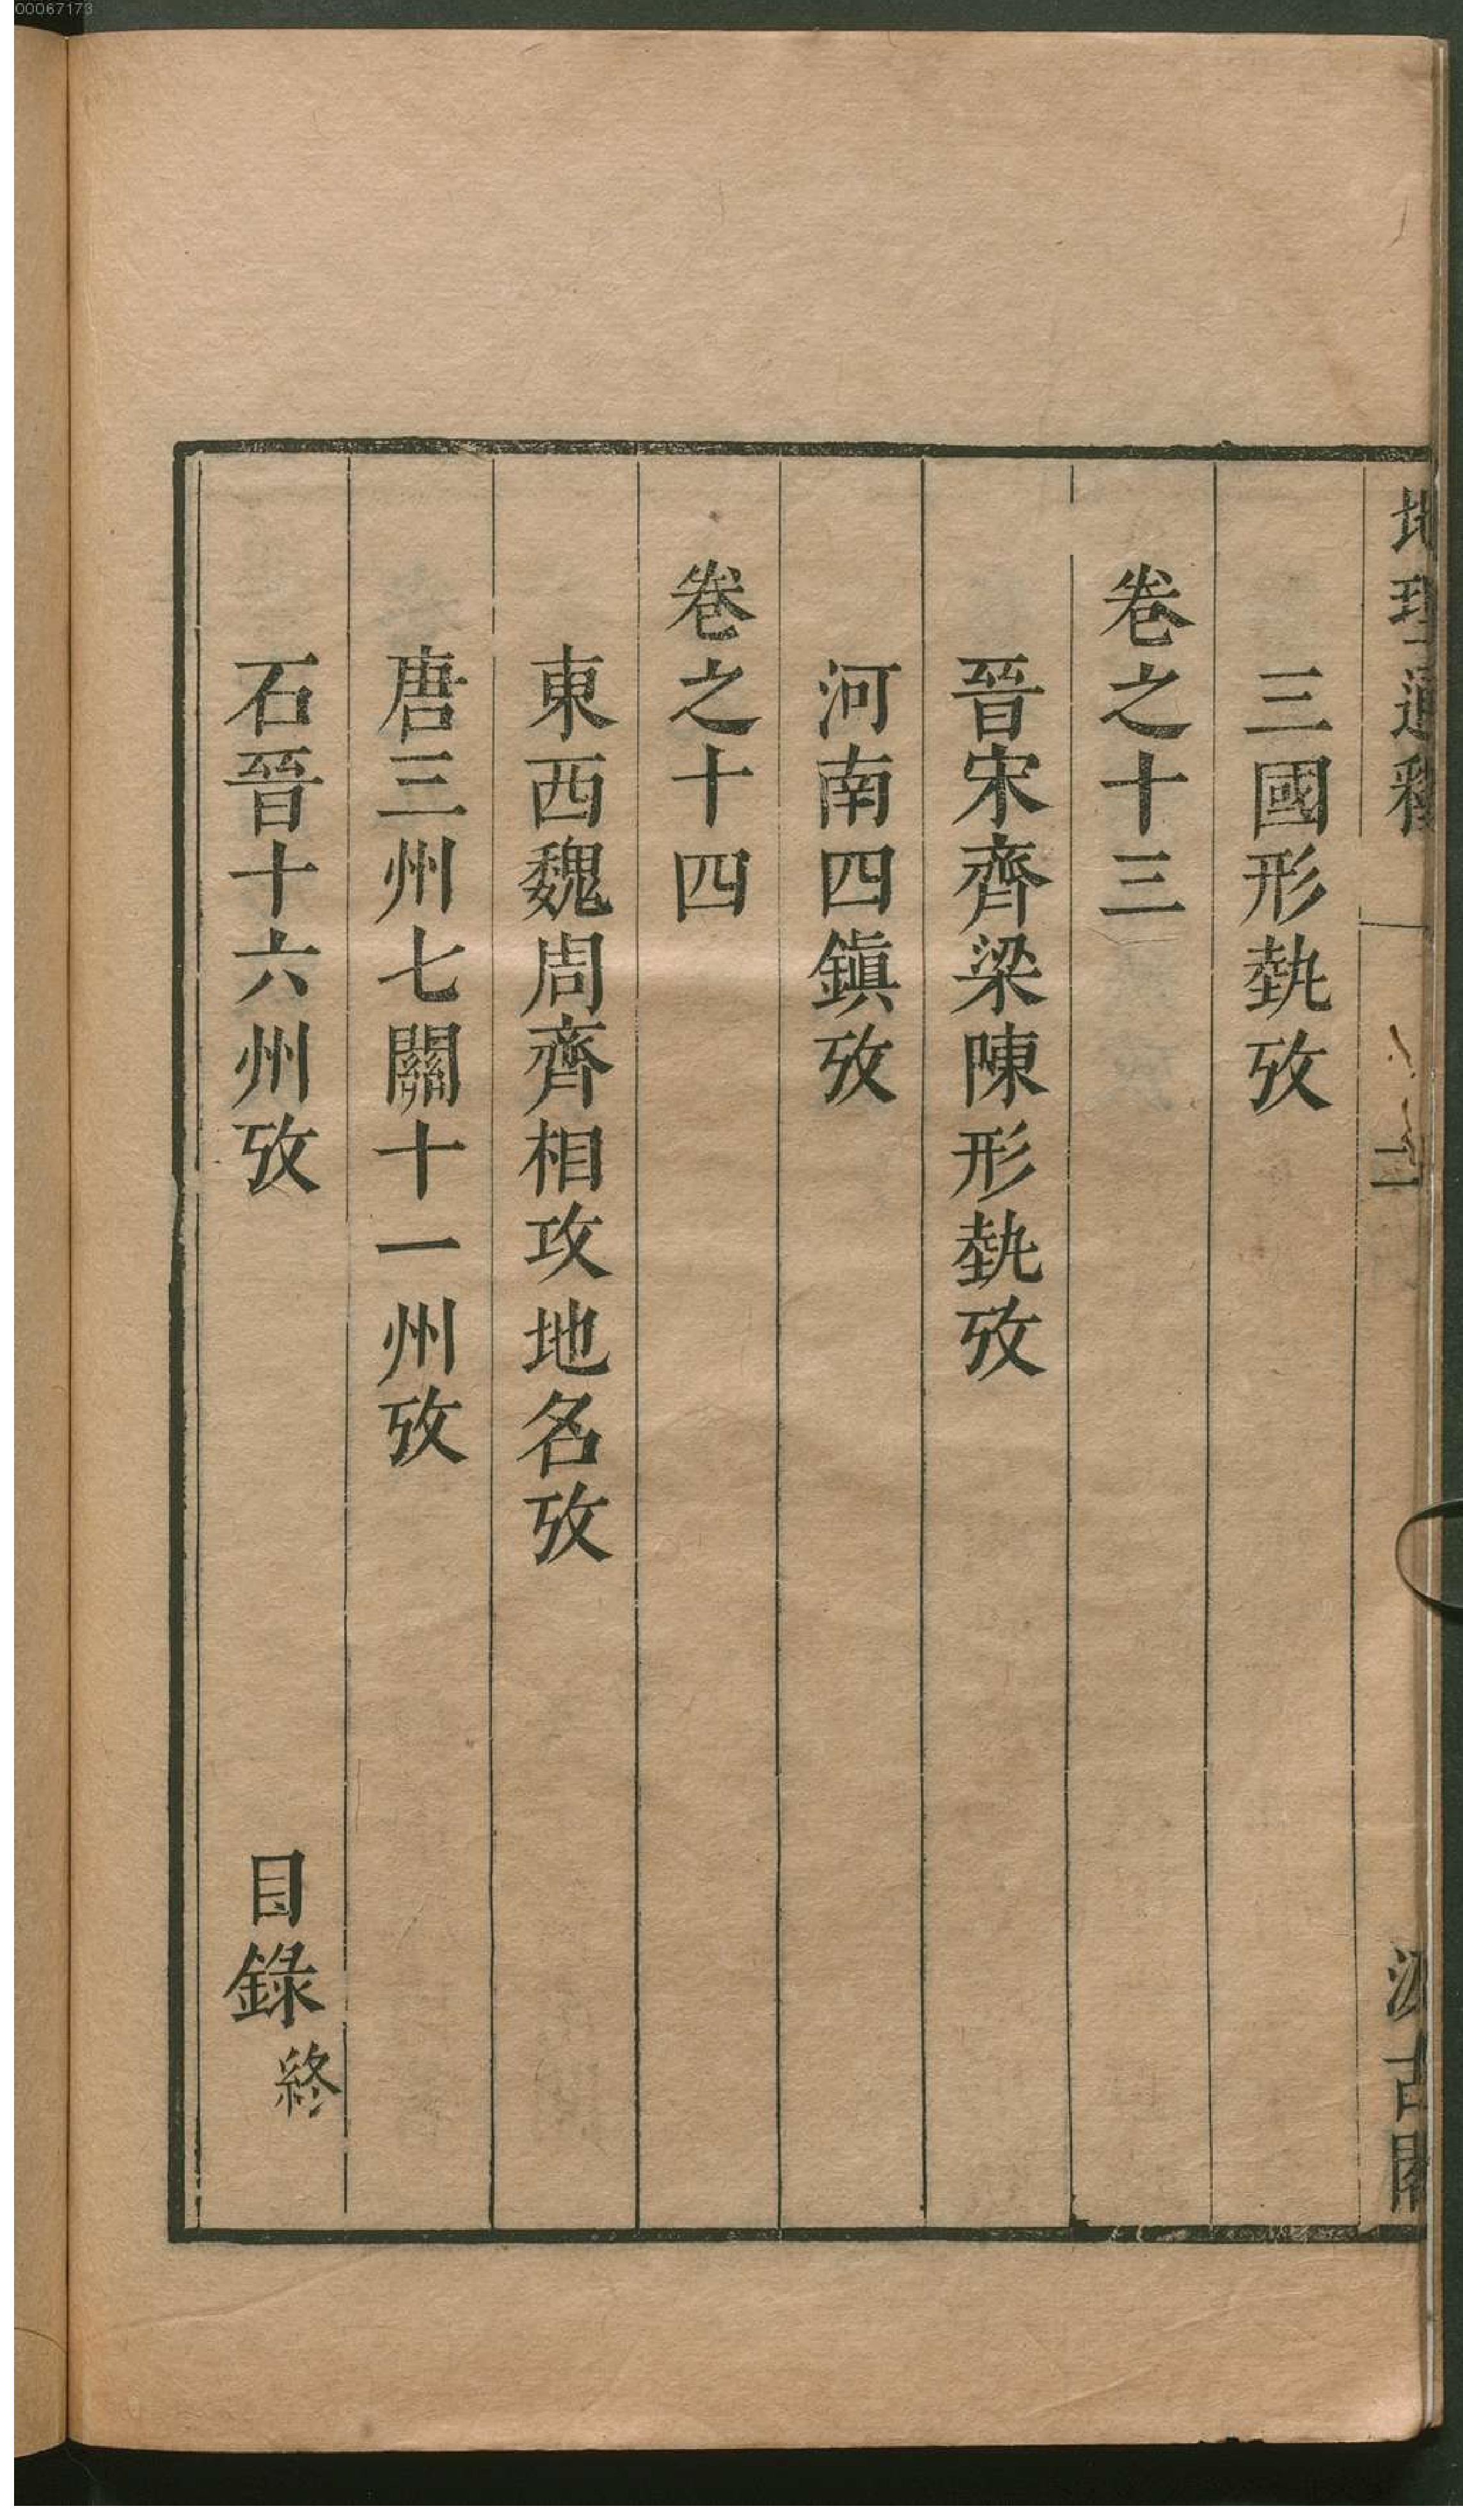 00067173
地理通釋
二
汲古閣
三國形埶攷
卷之十三
晉宋齊梁陳形埶攷
河南四鎭攷
卷之十四
東西魏周齊相攻地名攷
唐三州七關十一州攷
石晉十六州攷
目錄終